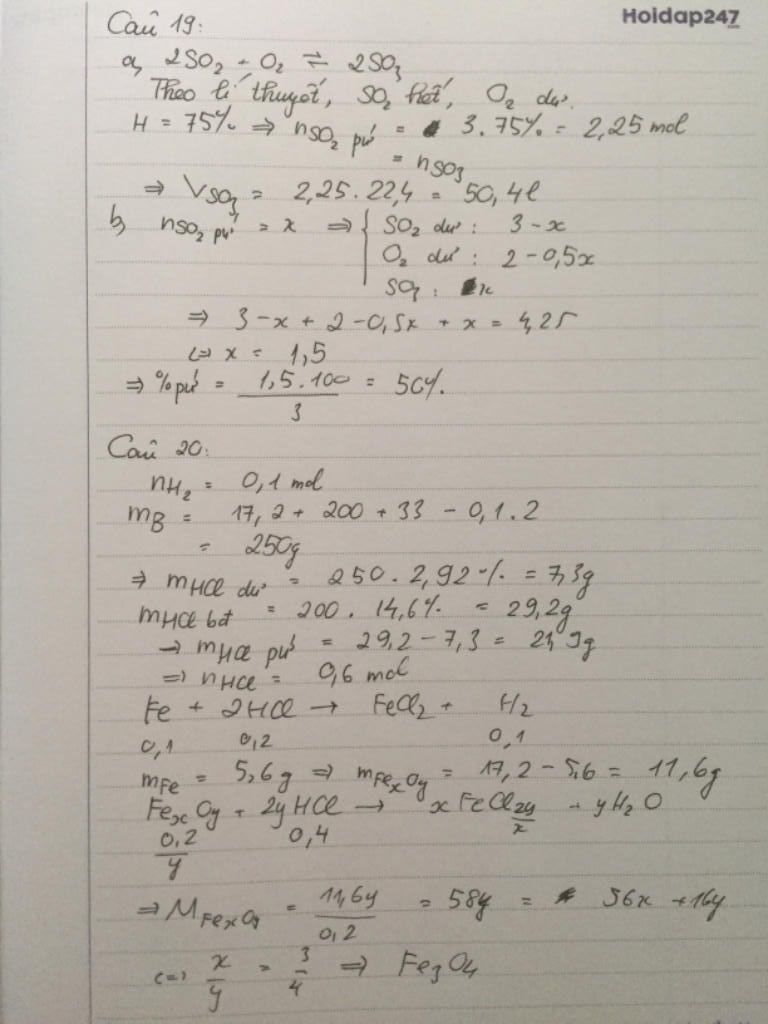 Hoidap247
Câu 19:
a, 2SO₂ + O₂ ⇌ 2SO₃
Theo lí thuyết, SO₂ hết, O₂ dư.
H = 75% ⇒ nSO₂ pứ = 3.75% = 2,25 mol
= nSO₃
⇒ VSO₃ = 2,25.22,4 = 50,4l
b, nSO₂ pứ = x ⇒ { SO₂ dư : 3 - x
O₂ dư : 2 - 0,5x
SO₃ : x
⇒ 3 - x + 2 - 0,5x + x = 4,25
⇔ x = 1,5
⇒ % pứ = 1,5.100 / 3 = 50%.
Câu 20:
nH₂ = 0,1 mol
mB = 17,2 + 200 + 33 - 0,1.2
= 250g
⇒ mHCl dư = 250.2,92% = 7,3g
mHCl bđ = 200.14,6% = 29,2g
→ mHCl pứ = 29,2 - 7,3 = 21,9g
⇒ nHCl = 0,6 mol
Fe + 2HCl → FeCl₂ + H₂
0,1 0,2 0,1
mFe = 5,6g ⇒ mFexOy = 17,2 - 5,6 = 11,6g
FexOy + 2yHCl → xFeCl2y/x + yH₂O
0,2/y 0,4
⇒ MFexOy = 11,6y / 0,2 = 58y = 56x + 16y
⇔ x/y = 3/4 ⇒ Fe₃O₄